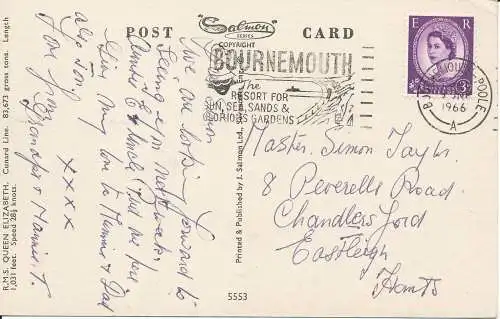 POST CARD
"Salmon"
SERIES
COPYRIGHT
BOURNEMOUTH
The
RESORT FOR
SUN, SEA, SANDS &
GLORIOUS GARDENS
BOURNEMOUTH POOLE
1966
A
E R
3D
Dear Simon
We are looking forward to
seeing you next week,
Auntie & Uncle Bert are here
Give my love to Mummie & Dad
also Jon.
Love from
Grandpa & T.
X X X X
Master Simon Taylor
8 Peverells Road
Chandlers Ford
Eastleigh
Hants
Printed & Published by J. Salmon Ltd.,
5553
R.M.S. QUEEN ELIZABETH. Cunard Line. 83,673 gross tons. Length
1,031 feet. Speed 28½ knots.